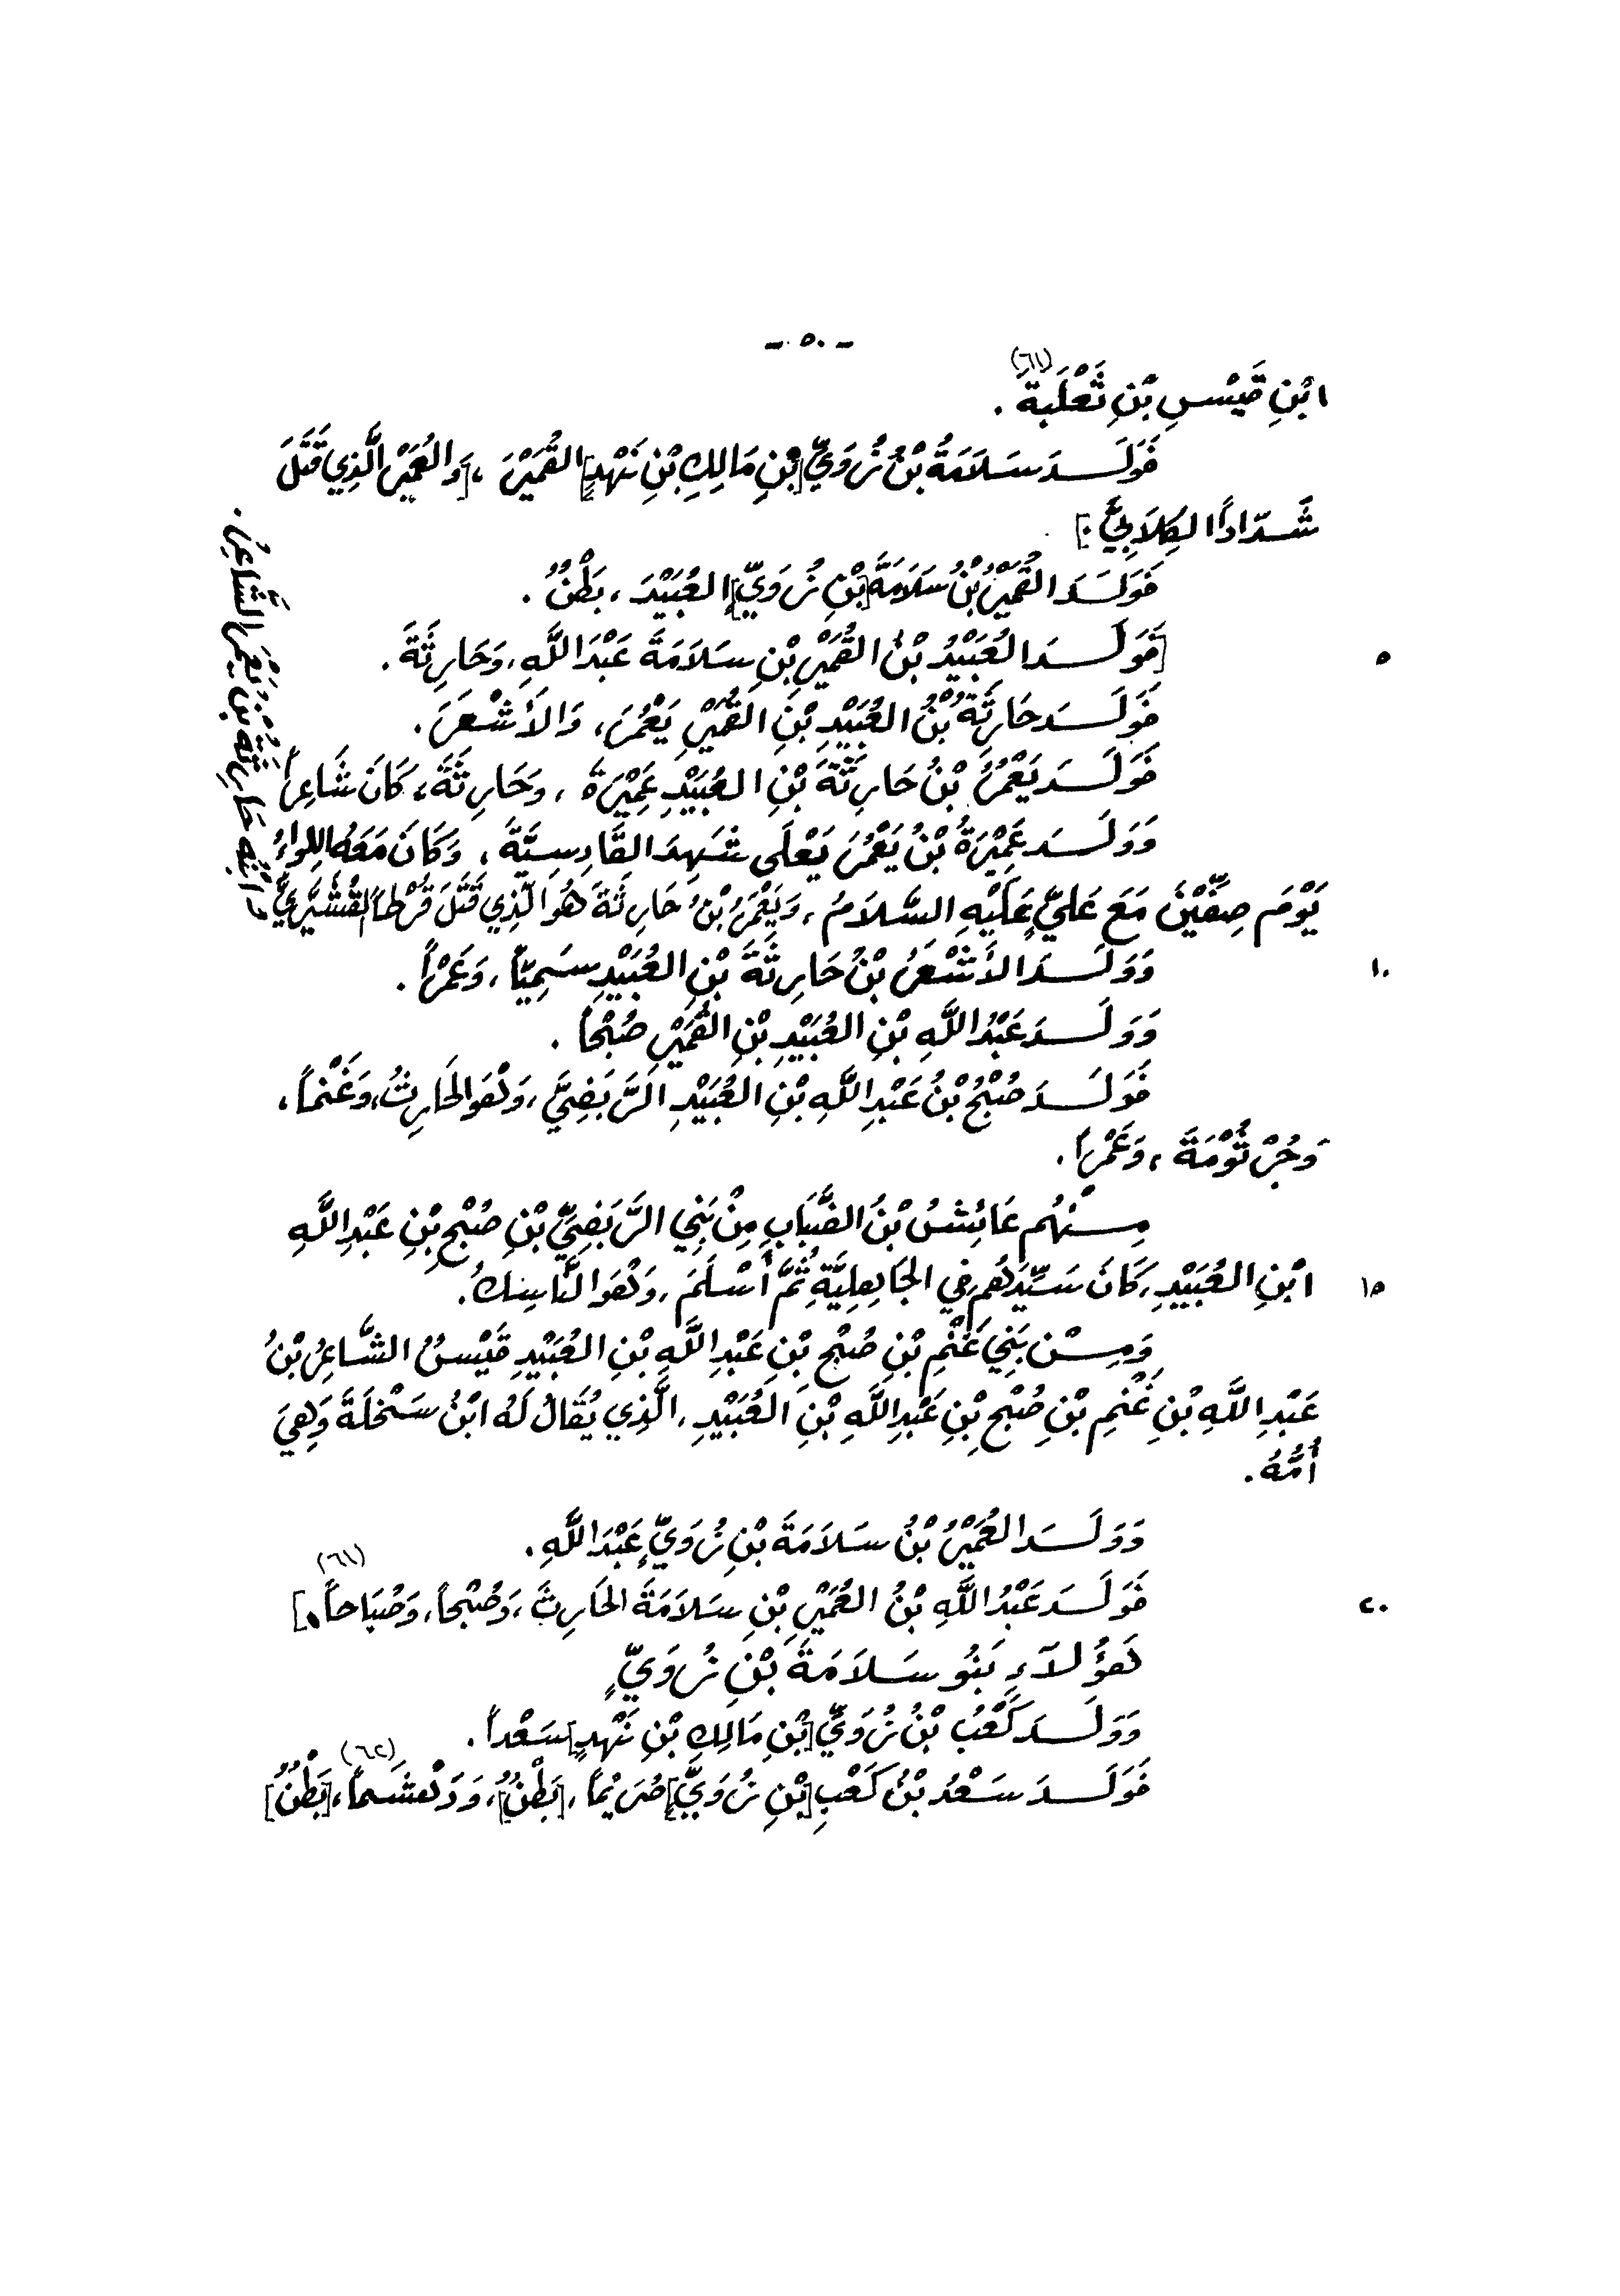 - ٥٠ -
ابْنِ قَيْسِ بْنِ ثَعْلَبَةَ (٦١).
فَوَلَدَ سَلاَمَةُ بْنُ زُوَيٍّ [بْنِ مَالِكِ بْنِ نَهْدٍ] القُمَيْرَ، [وَالعُمَيْرَ الَّذِي قَتَلَ
شَدَّاداً الكِلاَبِيَّ.]
فَوَلَدَ القُمَيْرُ بْنُ سَلاَمَةَ [بْنِ زُوَيٍّ] العُبَيْدَ، بَطْنٌ.
[فَوَلَدَ العُبَيْدُ بْنُ القُمَيْرِ بْنِ سَلاَمَةَ عَبْدَ اللَّهِ، وَحَارِثَةَ. ٥
فَوَلَدَ حَارِثَةُ بْنُ العُبَيْدِ بْنِ القُمَيْرِ يَعْمُرَ، وَالأَشْعَرَ.
فَوَلَدَ يَعْمُرُ بْنُ حَارِثَةَ بْنِ العُبَيْدِ عَمِيْرَةَ، وَحَارِثَةَ، كَانَ شَاعِراً
وَوَلَدَ عَمِيْرَةُ بْنُ يَعْمُرَ يَعْلَى شَهِدَ القَادِسِيَّةَ، وَكَانَ مَعَهُ اللِوَاءُ
يَوْمَ صِفِّيْنَ مَعَ عَلِيٍّ عَلَيْهِ السَّلاَمُ، وَيَعْمَرُ بْنُ حَارِثَةَ هُوَ الَّذِي قَتَلَ قُرْطاً القُشَيْرِيَّ
وابْنُهُ حَارِثَةُ بْنُ يَعْمَرَ الشَّاعِرُ.
وَوَلَدَ الأَشْعَرُ بْنُ حَارِثَةَ بْنِ العُبَيْدِ سَمِيّاً، وَعَمْراً. ١٠
وَوَلَدَ عَبْدُ اللَّهِ بْنِ العُبَيْدِ بْنِ القُمَيْرِ صُبْحاً.
فَوَلَدَ صُبْحُ بْنُ عَبْدِ اللَّهِ بْنِ العُبَيْدِ الرَّبَضِيَّ، وَهْوَ الحَارِثُ، وَغَنْماً،
وَجُرْثُوْمَةَ، وَعَمْراً.
مِنْهُم عَائِشُ بْنُ الضَّبَابِ مِنْ بَنِي الرَّبَضِيِّ بْنِ صُبْحِ بْنِ عَبْدِ اللَّهِ
ابْنِ العُبَيْدِ، كَانَ سَيِّدَهُم فِي الجَاهِلِيَّةِ ثُمَّ أَسْلَمَ، وَهْوَ النَّاسِكُ. ١٥
وَمِنْ بَنِي غَنْمِ بْنِ صُبْحِ بْنِ عَبْدِ اللَّهِ بْنِ العُبَيْدِ قَيْسُ الشَّاعِرُ بْنُ
عَبْدِ اللَّهِ بْنِ غَنْمِ بْنِ صُبْحِ بْنِ عَبْدِ اللَّهِ بْنِ العُبَيْدِ، الَّذِي يُقَالُ لَهُ ابْنُ سَخْلَةَ وَهِيَ
أُمُّهُ.
وَوَلَدَ العُمَيْرُ بْنُ سَلاَمَةَ بْنِ زُوَيٍّ عَبْدَ اللَّهِ.
فَوَلَدَ عَبْدُ اللَّهِ بْنُ العُمَيْرِ بْنِ سَلاَمَةَ الحَارِثَ، وَصُبْحاً، وَصُبَاحاً (٦١).] ٢٠
هَؤُلاَءِ بَنُو سَلاَمَةَ بْنِ زُوَيٍّ
وَوَلَدَ كَعْبُ بْنُ زُوَيٍّ [بْنِ مَالِكِ بْنِ نَهْدٍ] سَعْداً.
فَوَلَدَ سَعْدُ بْنُ كَعْبِ [بْنِ زُوَيٍّ] صُرَيْماً، [بَطْنٌ]، وَدَهْشَماً (٦٢)، [بَطْنٌ]